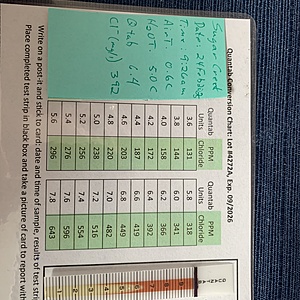 Quantab Conversion Chart: Lot #4272A, Exp. 09/2026
Sugar Creek
Date: 24Feb2025
Time: 9:26am
AirT 0.6C
H2OT: 5.0C
Qtab 6.4
Cl- (mg/L) 392
Quantab Units PPM Chloride Quantab Units PPM Chloride
3.6 131 5.8 318
3.8 144 6.0 341
4.0 158 6.2 366
4.2 172 6.4 392
4.4 187 6.6 419
4.6 203 6.8 449
4.8 220 7.0 482
5.0 238 7.2 516
5.2 256 7.4 554
5.4 276 7.6 596
5.6 296 7.8 643
Write on a post-it and stick to card: date and time of sample, results of test strip
Place completed test strip in black box and take a picture of card to report with